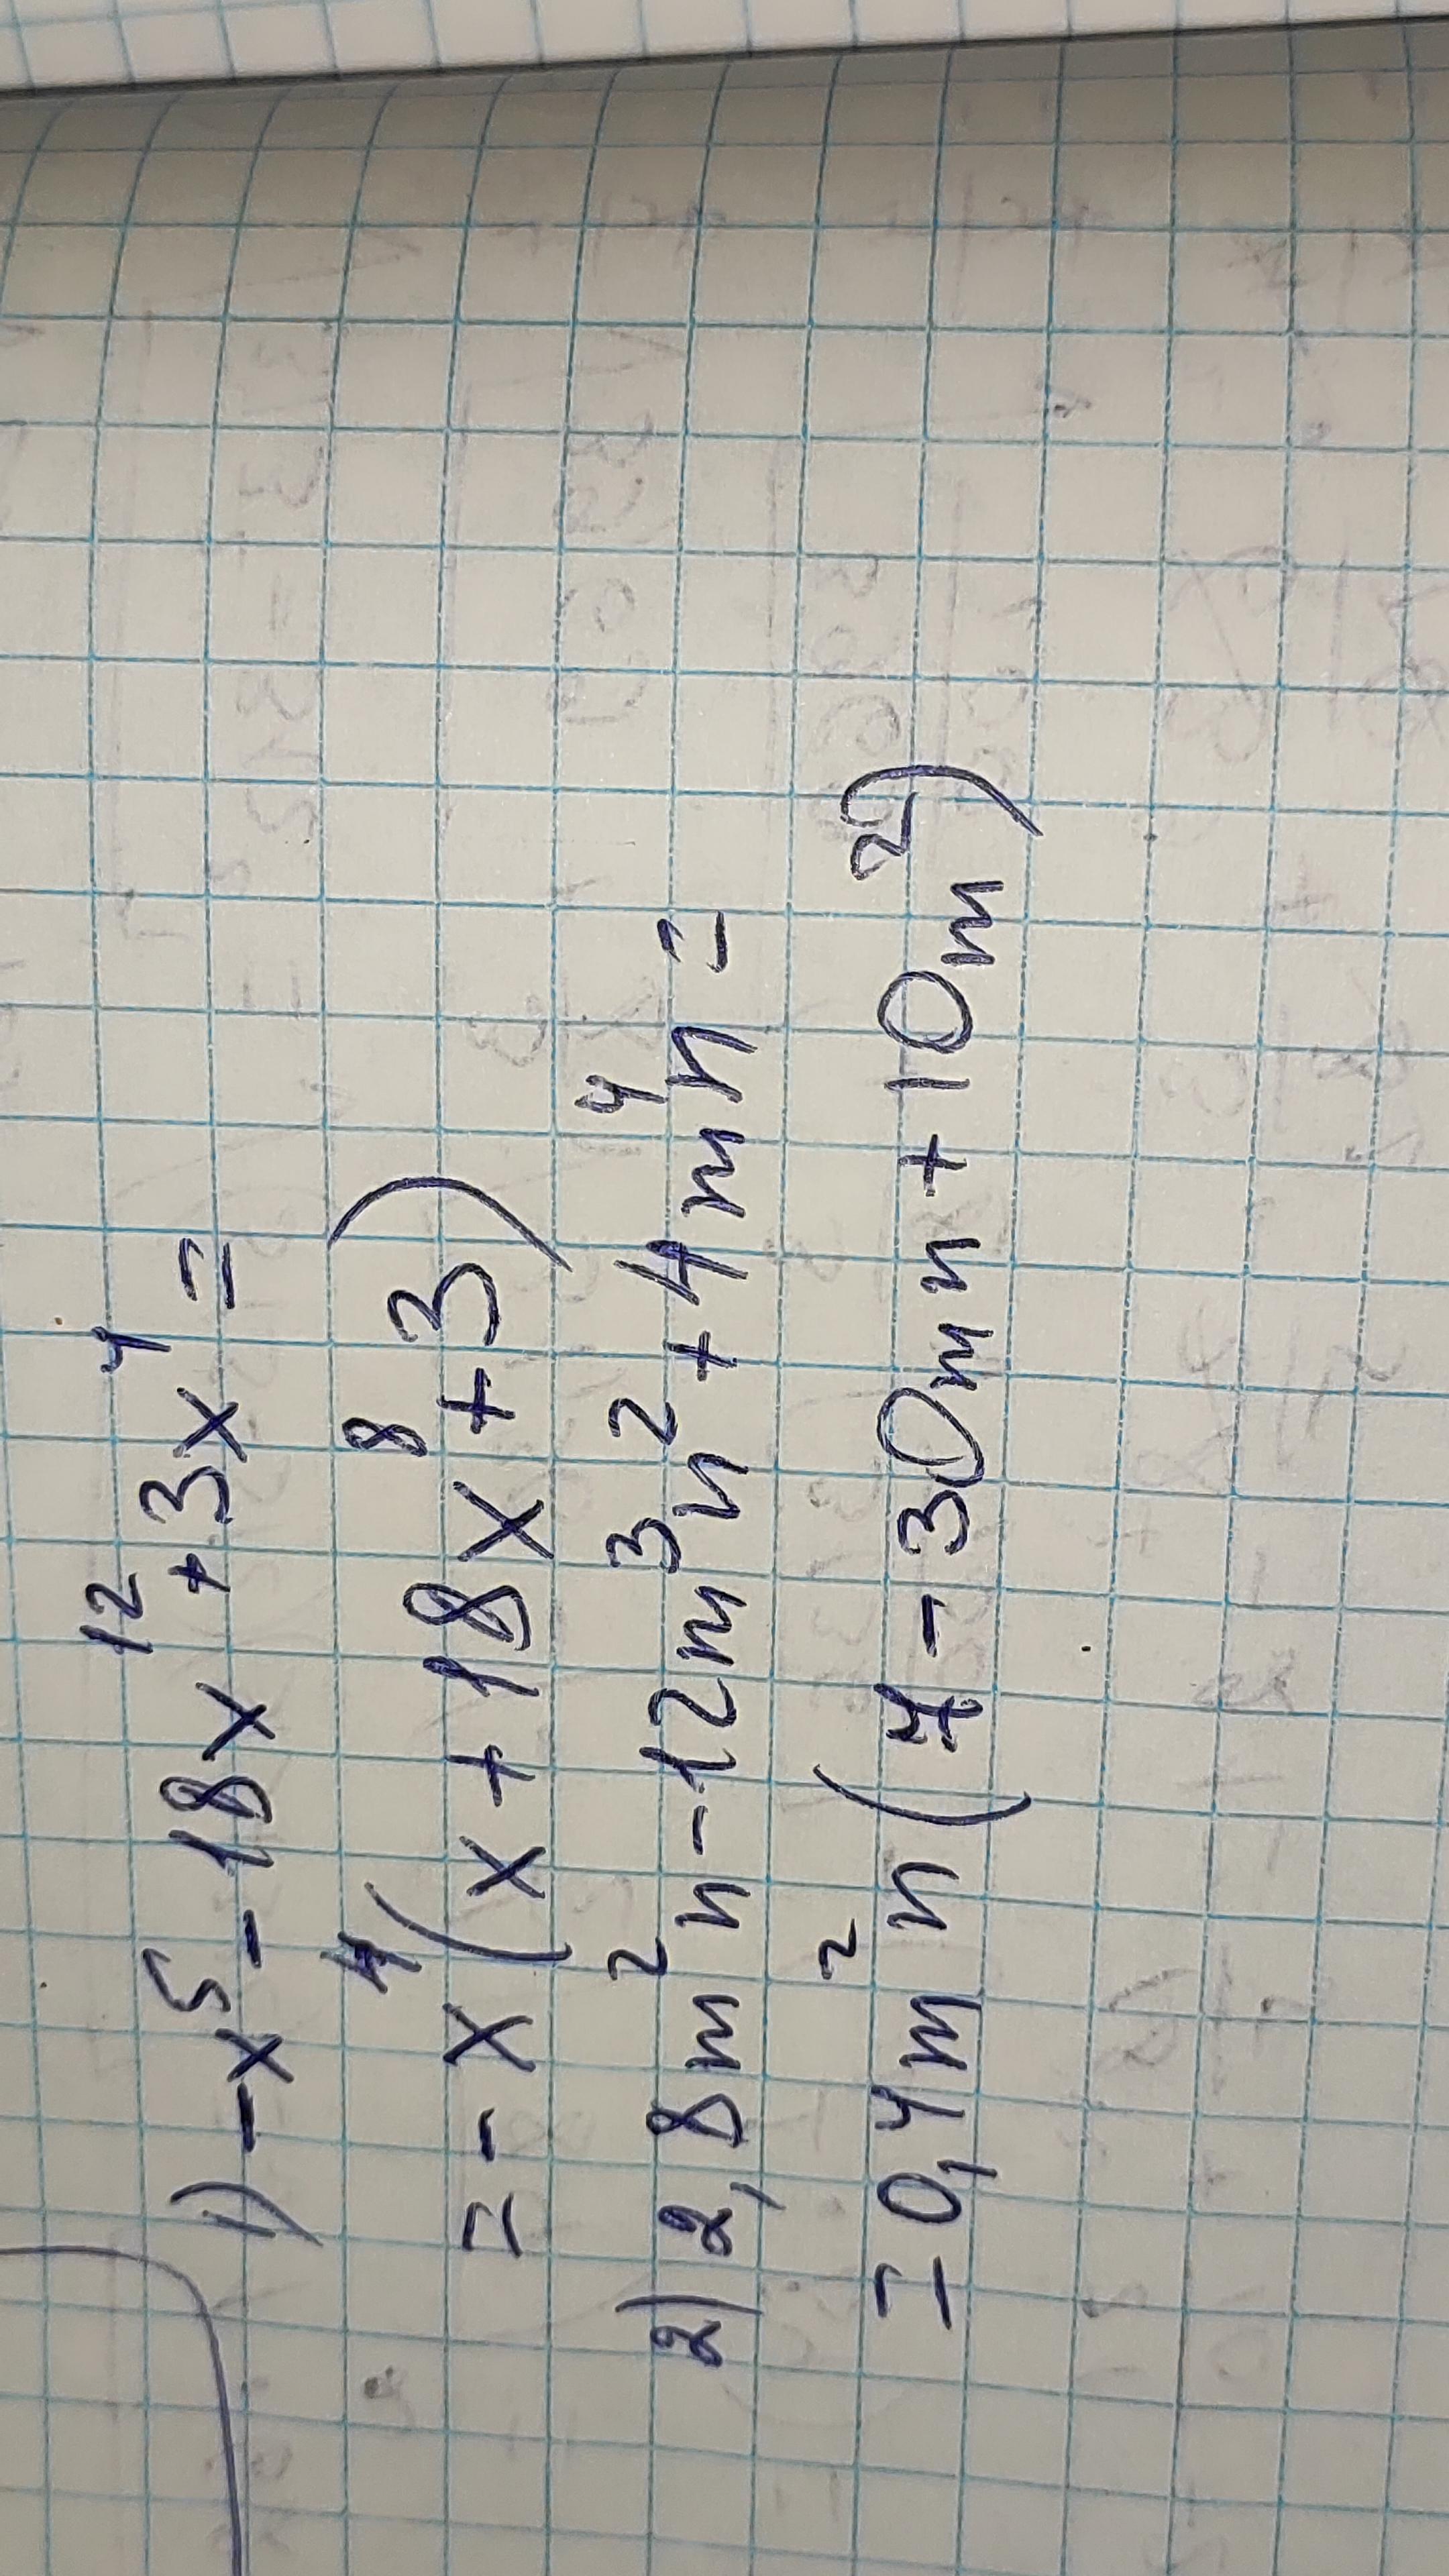 1) -x⁵ - 18x¹² + 3x⁴ =
= - x⁴(x + 18x⁸ + 3)
2) 2,8m²n - 12m³n² + 4m⁴n =
= 0,4m²n(7 - 30mn + 10m²)